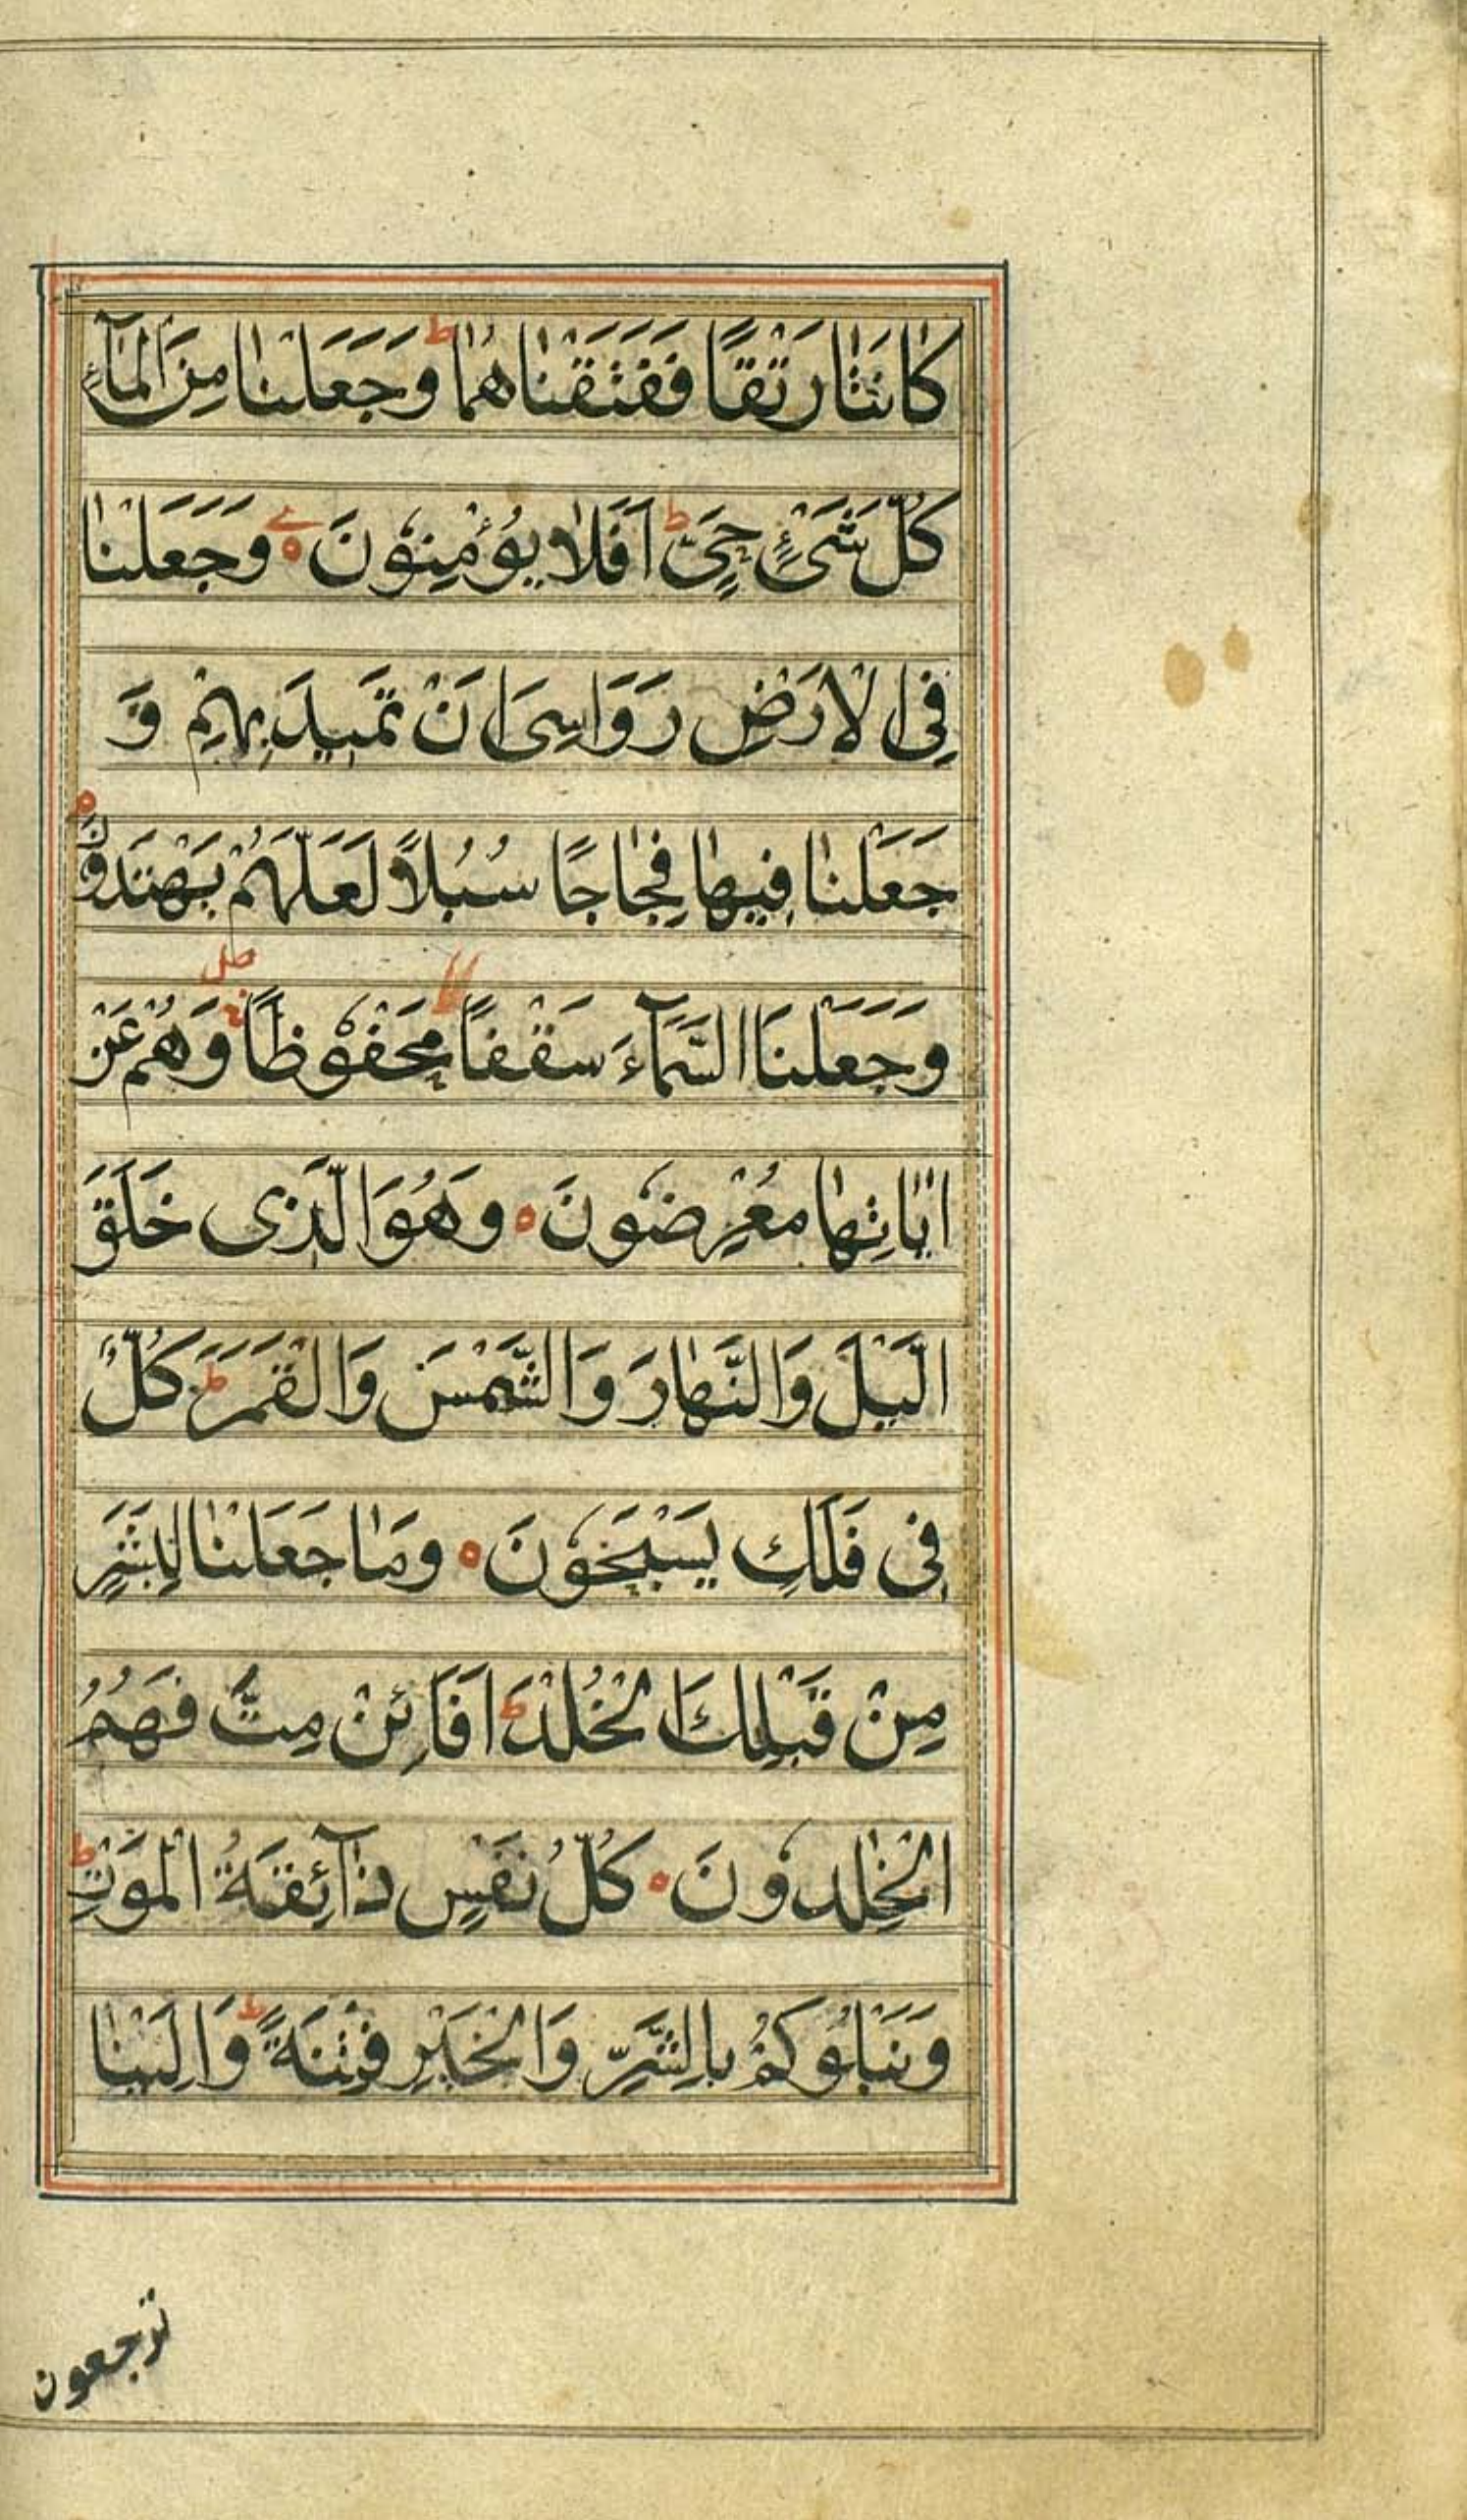 كَانَتَا رَتْقًا فَفَتَقْنَاهُمَا ط وَجَعَلْنَا مِنَ الْمَآءِ
كُلَّ شَىْءٍ حَىٍّ ط اَفَلَا يُؤْمِنُونَ ه وَجَعَلْنَا
فِى الْاَرْضِ رَوَاسِىَ اَنْ تَمِيدَ بِهِمْ وَ
جَعَلْنَا فِيهَا فِجَاجًا سُبُلًا لَعَلَّهُمْ يَهْتَدُونَ ه
وَجَعَلْنَا السَّمَآءَ سَقْفًا مَحْفُوْظًا صل وَهُمْ عَنْ
اٰيَاتِهَا مُعْرِضُونَ ه وَهُوَ الَّذِى خَلَقَ
الَّيْلَ وَالنَّهَارَ وَالشَّمْسَ وَالْقَمَرَ ط كُلٌّ
فِى فَلَكٍ يَسْبَحُوْنَ ه وَمَا جَعَلْنَا لِبَشَرٍ
مِنْ قَبْلِكَ الْخُلْدَ ط اَفَائِنْ مِتَّ فَهُمُ
الْخٰلِدُونَ ه كُلُّ نَفْسٍ ذَآئِقَةُ الْمَوْتِ ط
وَنَبْلُوَكُمْ بِالشَّرِّ وَالْخَيْرِ فِتْنَةً ط وَاِلَيْنَا
ترجعون